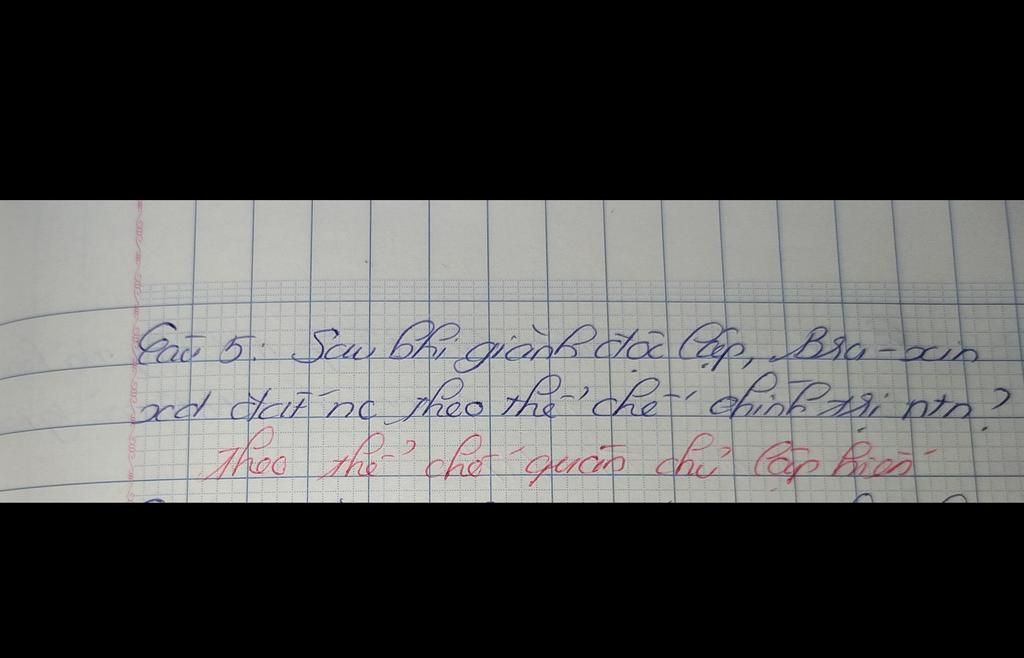 Câu 5: Sau khi giành độc lập, Bra-xin
xd đất nc theo thể chế chính trị ntn?
Theo thể chế quân chủ lập hiến